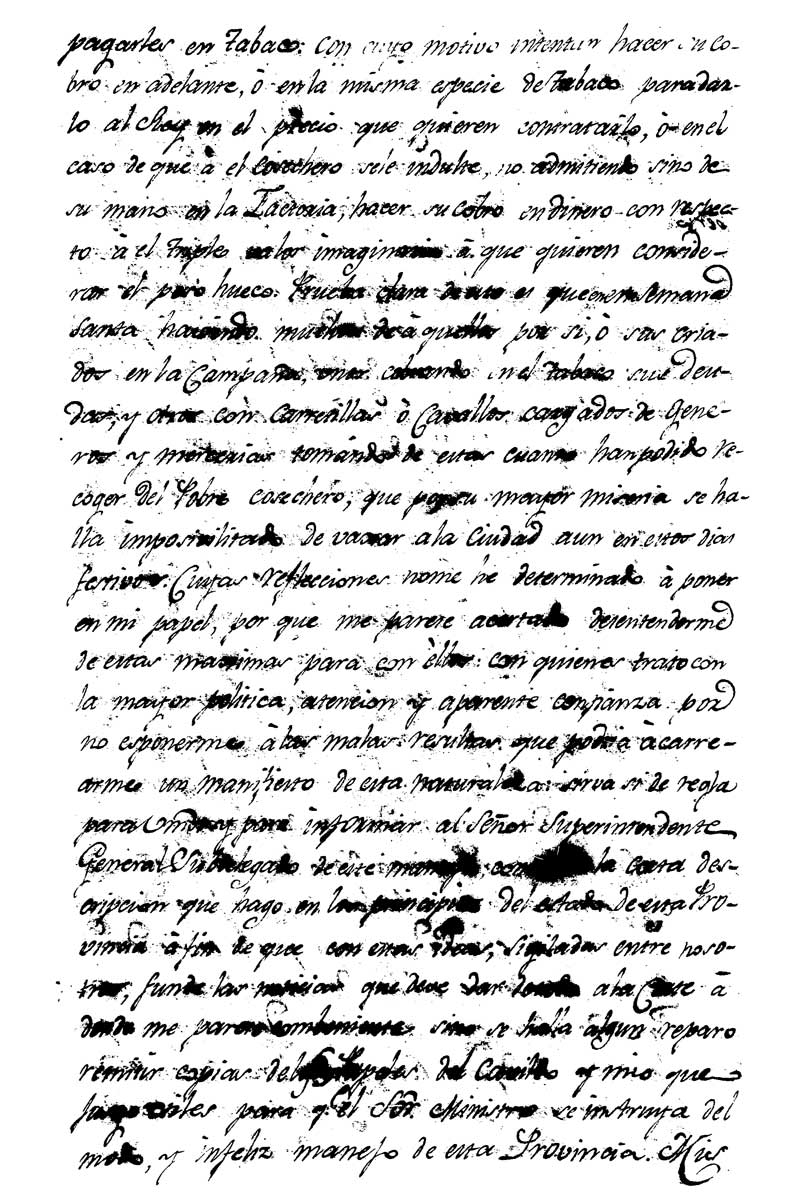 pagarles en Tabaco: con cuyo motivo intentan hacer su co-
bro en adelante, ò en la misma especie de tabaco para dar-
lo al Rey en el precio que quieren contratarlo, ò en el
caso de que à el cosechero sele indulte, no admitiendo sino de
su mano en la Factoria, hacer su cobro en dinero con respec-
to à el triple valor imaginario à que quieren conside-
rar el peso hueco. Prueba clara de esto es que en Semana
Santa haciendo muchos de àquellos por si, ò sus cria-
dos en la Campaña, unos cobrando en el tabaco sus deu-
das, y otros con Carretillas ò Cavallos cargados de Gene-
ros y mercerias tomando de estas cuanto han podido re-
coger del Pobre cosechero, que por su mayor miseria se ha-
lla imposivilitado de vaxar ala Ciudad aun en estos dias
festivos. Cuyas reflecciones nome he determinado à poner
en mi papel, por que me parece acertado desentenderme
de estas maximas para con èllos: con quienes trato con
la mayor politica, atencion y aparente confianza por
no esponerme à las malas resultas que podria àcarre-
arme un manifiesto de esta naturaleza: sirva se de regla
para Vmd y para informar al Señor Superintendente
General Subdelegado de este manejo, con la corta des-
cripcion que hago en los principios del estado de esta Pro-
vincia à fin de que con estas ideas, sigiladas entre noso-
tros, funde las noticias que deve dar à la Corte à
donde me parece combeniente sino se halla àlgun reparo
remitir copias delos Papeles del Cavildo y mio que
juzgo utiles para q el Sor. Ministro se instruya del
modo, y infeliz manejo de esta Provincia. Mis